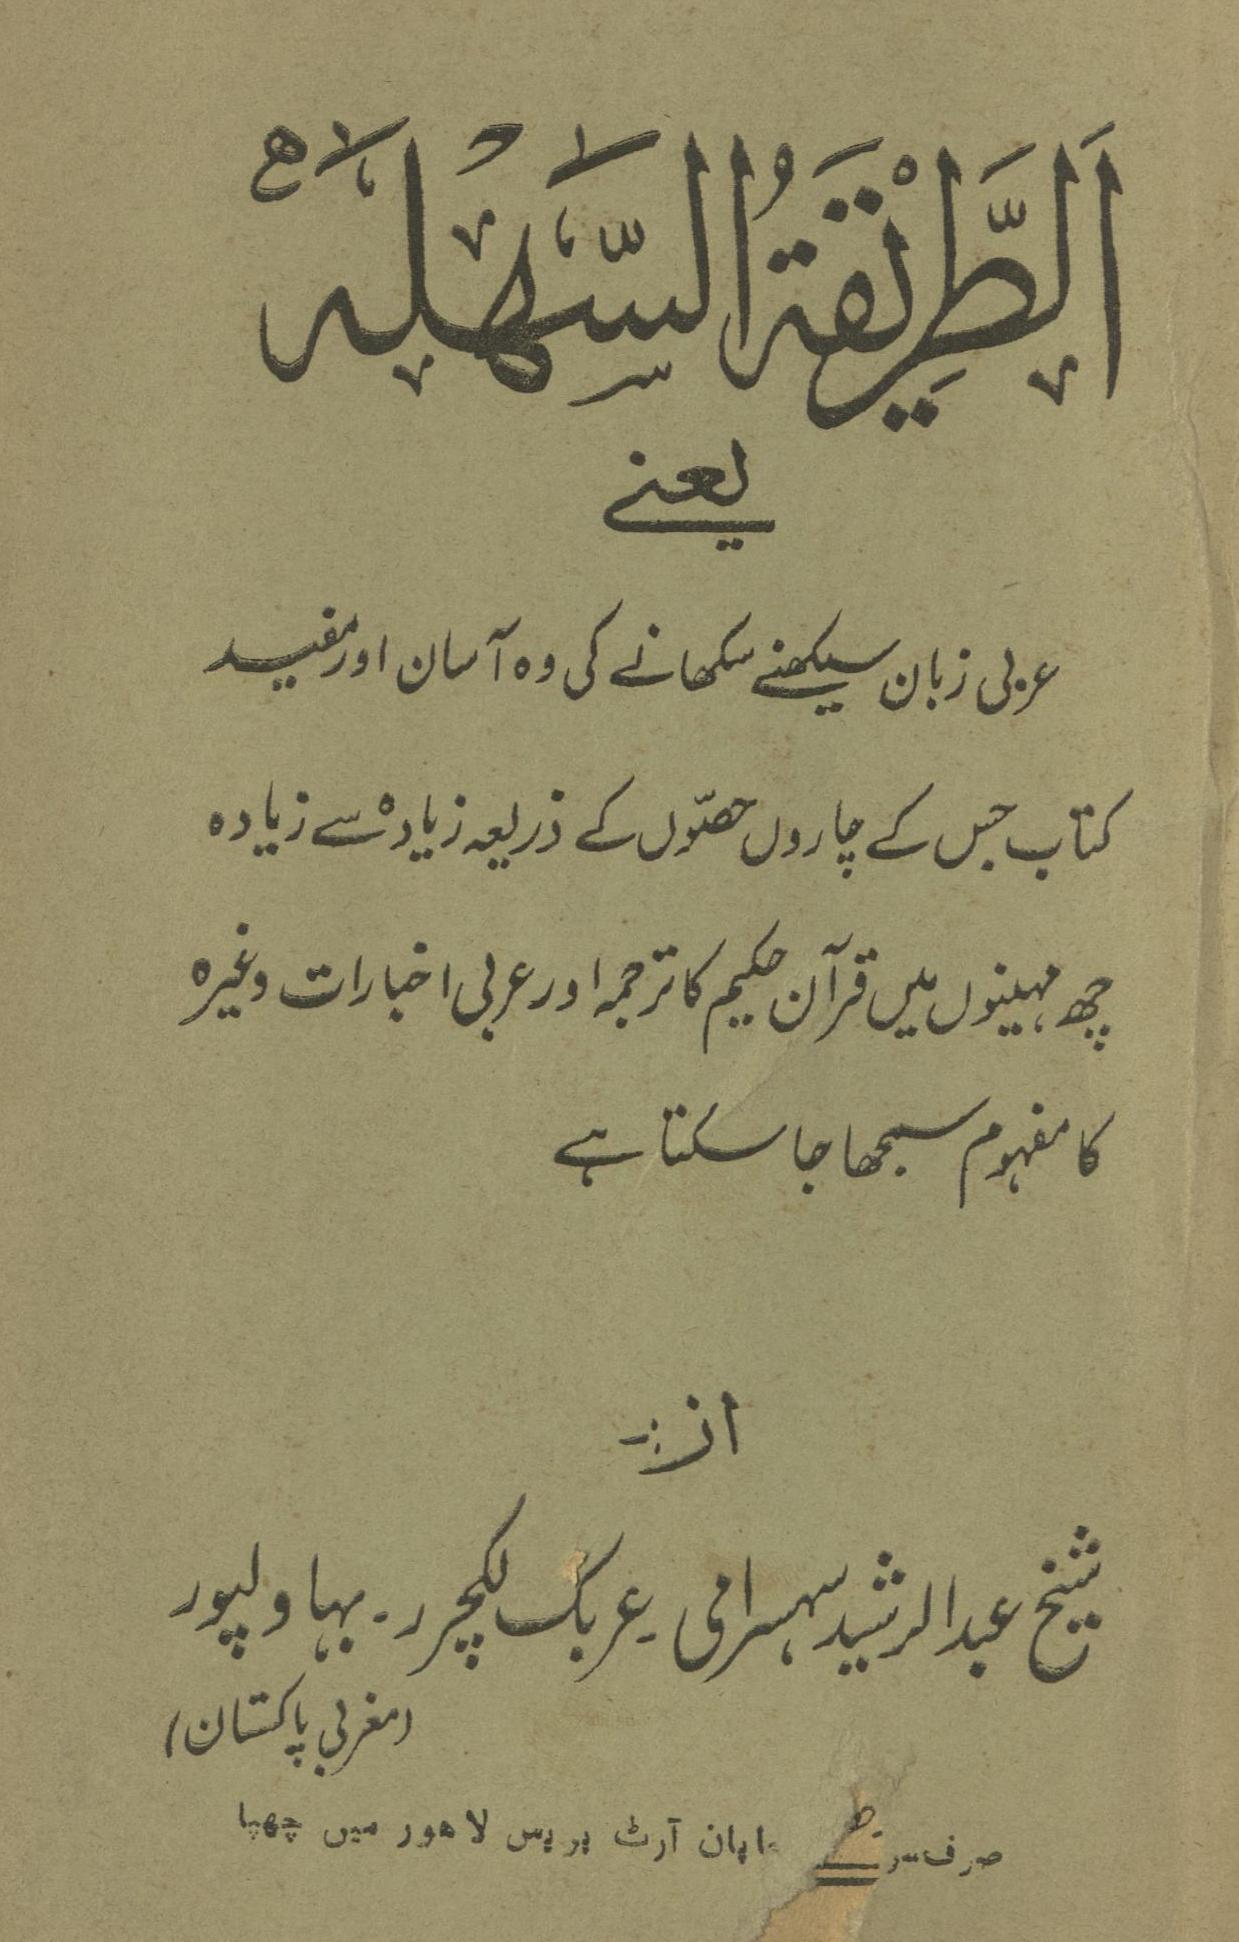 اَلطَّرِیْقَةُ السَّهْلَه
یعنے
عربی زبان سیکھنے سکھانے کی وہ آسان اور مفید
کتاب جس کے چاروں حصّوں کے ذریعہ زیادہ سے زیادہ
چھ مہینوں میں قرآن حکیم کا ترجمہ اور عربی اخبارات وغیرہ
کا مفہوم سمجھا جا سکتا ہے
از:-
شیخ عبدالرشید سہسرامی عربک لکچرر - بہاولپور
(مغربی پاکستان)
صرف آرٹ پریس لاهور میں چھپا